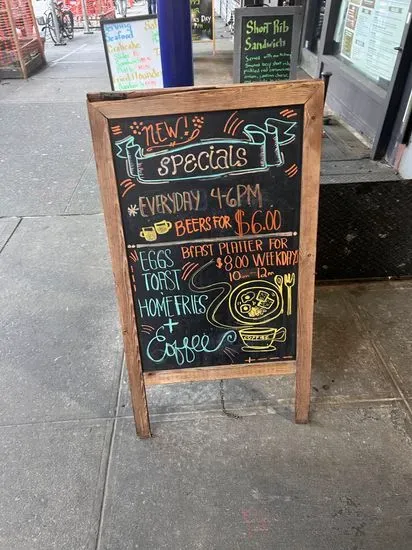 NEW!
SPECIALS
*EVERYDAY 4-6PM
BEERS FOR $6.00
BFAST PLATTER FOR
$8.00 WEEKDAY
10am-12pm
EGGS
TOAST
HOMEFRIES
+
Coffee
COFFEE
Short Rib
Sandwich
Seafood